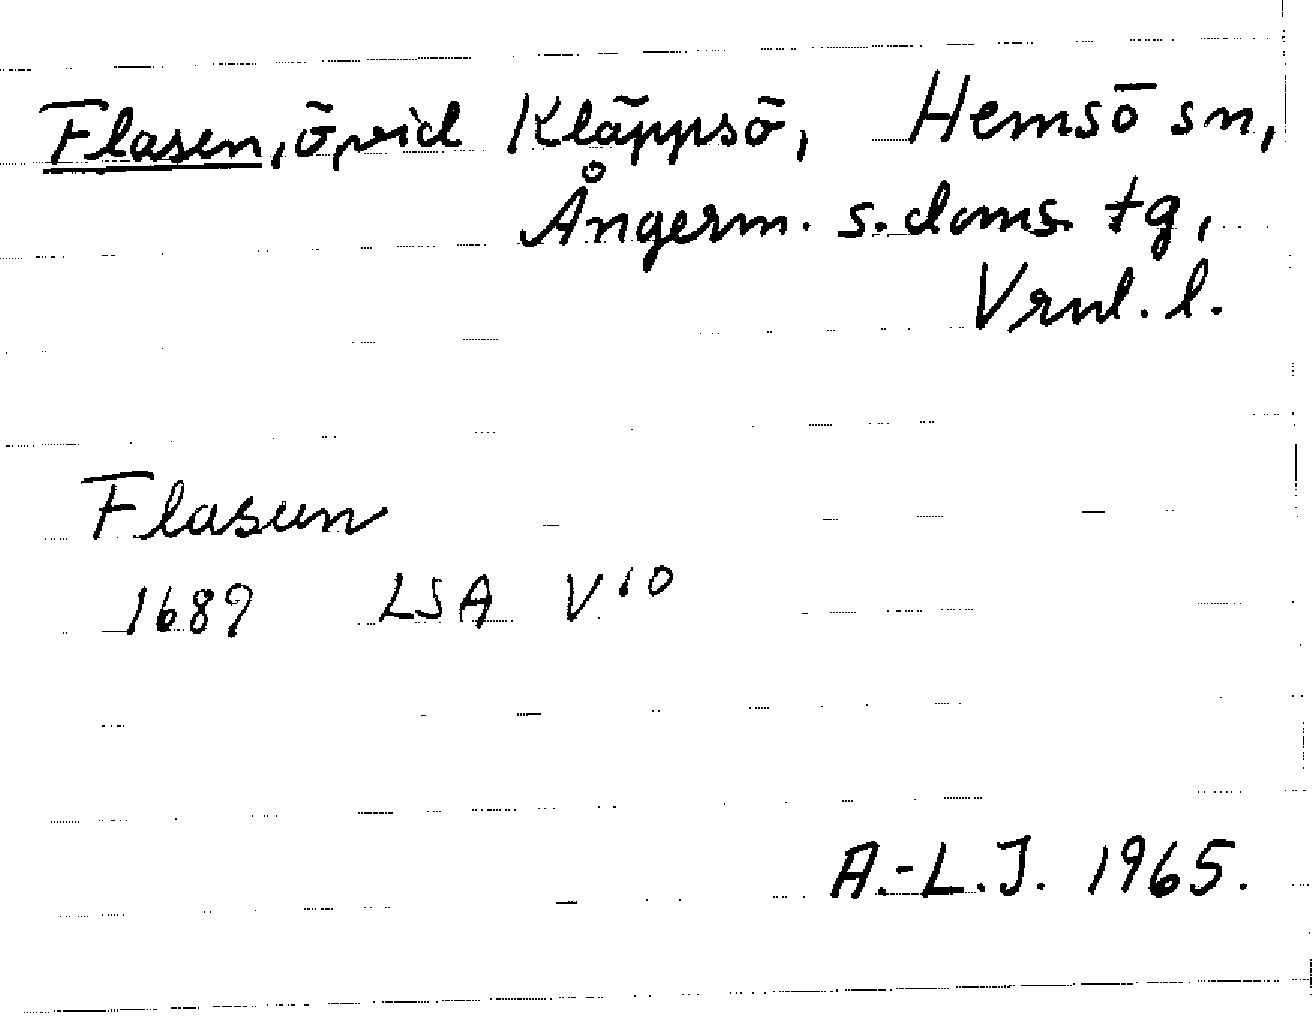 Flasen, ö, vid Kläppsö, Hemsö sn,
Ångerm. s. doms. tg,
Vrnl. l.
Flasun
1689 LSA V 10
A.-L.J. 1965.